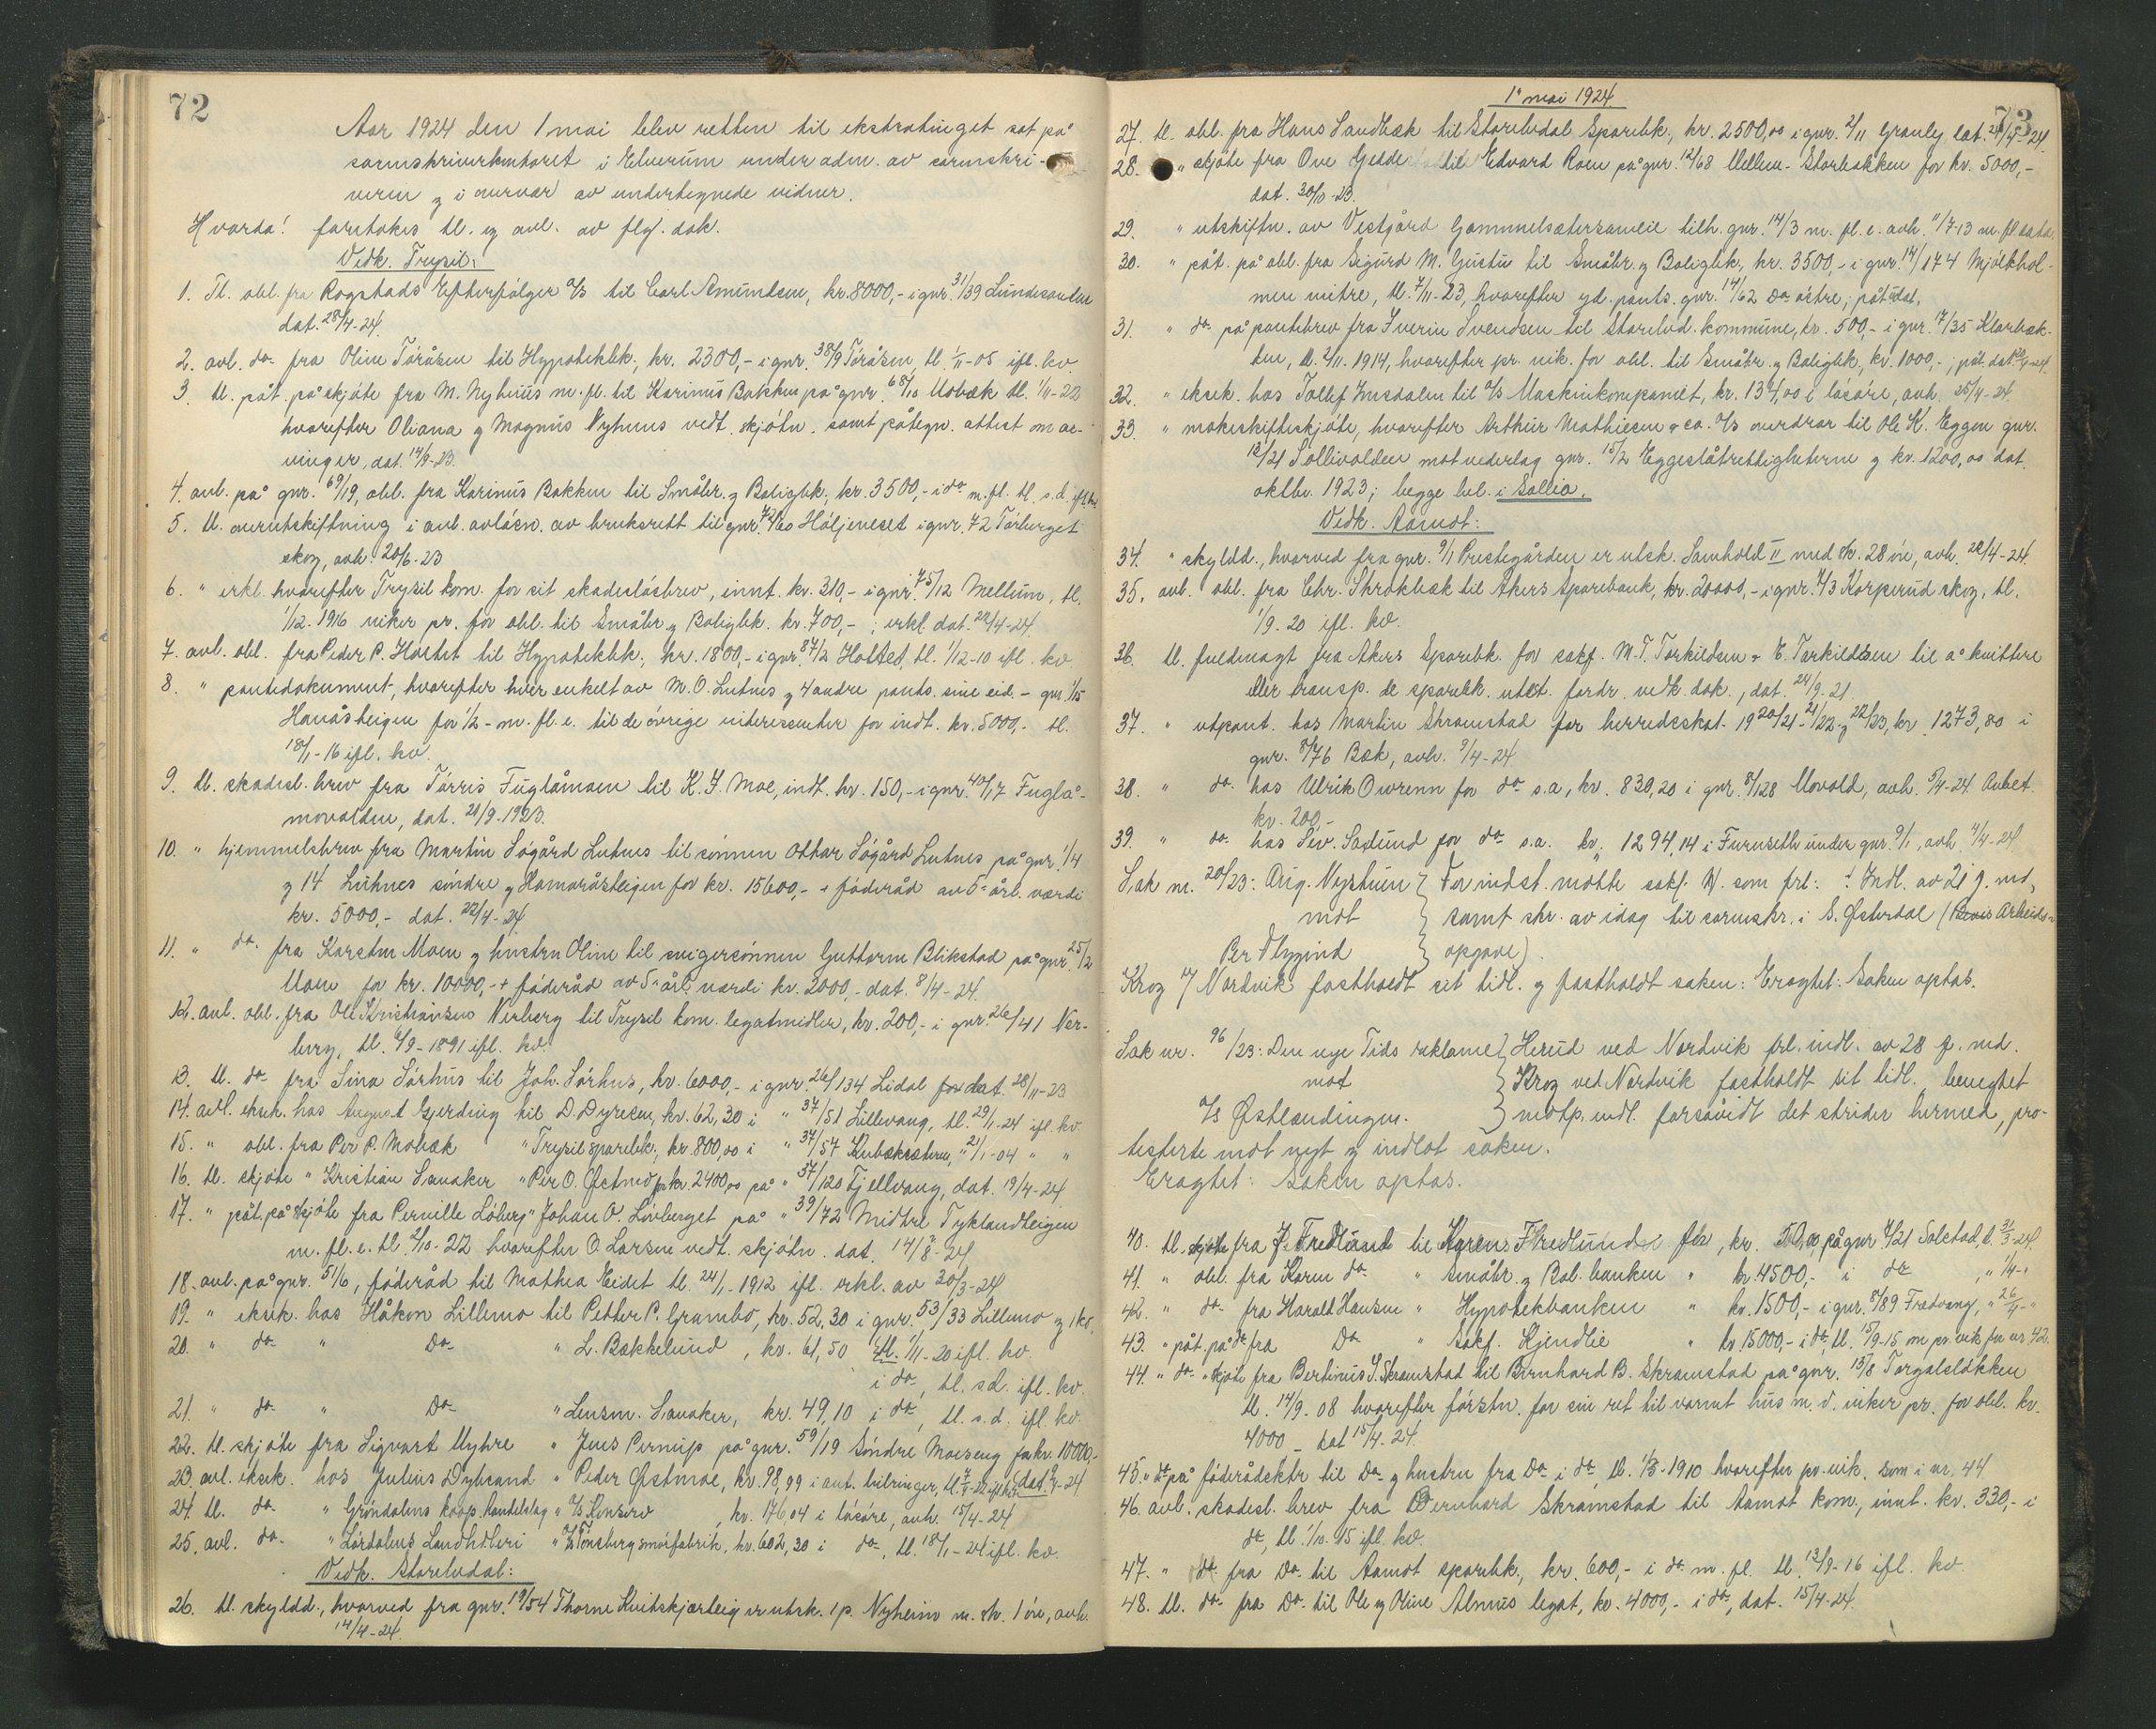 72
Aar 1924 den 1 mai blev retten til ekstratinget sat på
sorenskriverkontoret i Elverum under adm. av sorenskri-
veren og i overvær av undertegnede vidner.
Hvorda: foretokes tl. og avl. av flg. dok.
Vedk. Trysil:
1. Tl. obl. fra Rogstads Efterfølger A/S til Carl Amundsen, kr. 8000,- i gnr. 31/39 Lundesanden
dat. 28/4-24.
2. avl. do fra Oline Töråsen til Hypotekbk., kr. 2300,- i gnr. 38/9 Töråsen, tl. 1/11-05 ifl. kv.
3. tl. påt. på skjöte fra M. Nyhuus m. fl. til Karinus Bakken på gnr. 68/10 Mobæk tl. 1/11-22
hvorefter Oliana og Magnus Nyhuus vedt. skjötn. samt påtegn. attest om ar-
vinger, dat. 14/9-23.
4. avl. på gnr. 69/19, obl. fra Karinus Bakken til Småbr. og Boligbk., kr. 3500,- i do m. fl. tl. s.d. ifl. kv.
5. tl. overutskiftning i anl. avlösn. av bruksrett til gnr. 72/60 Höljeneset i gnr. 72 Törberget
skog, avh. 20/6-23
6. " erkl. hvorefter Trysil kom. for sit skadeslösbrev, innt. kr. 310,- i gnr. 75/12 Mellum, tl.
1/12-1916 viker pr. for obl. til Småbr. og Boligbk. kr. 700,- ; erkl. dat. 22/4-24.
7. avl. obl. fra Peder P. Holtet til Hypotekbk., kr. 1800,- i gnr. 87/2 Holtet, tl. 1/12-10 ifl. kv.
8. " pantedokument, hvorefter hver enkelt av M. O. Lutnes og 4 andre pants. sine eid. - gnr. 1/15
Hanåsteigen for 1/2 - m. fl. e. til de övrige interessenter for indt. kr. 5000,- tl.
18/1-16 ifl. kv.
9. tl. skadesl. brev fra Törris Fuglåmoen til K. J. Moe, indt. kr. 150,- i gnr. 40/17 Fuglå-
movolden, dat. 21/9-1923.
10. " hjemmelsbrev fra Martin Sögård Lutnes til sönnen Othar Sögård Lutnes på gnr. 1/4
og 14 Luhnes söndre og Hamaråsteigen for kr. 15600,- + föderåd av 5-årl. værdi
kr. 5000,- dat. 22/4-24.
11. " do fra Karsten Moen og hustru Oline til svigersönnen Guttorm Blikstad på gnr. 25/2
Moen for kr. 10000,- + föderåd av 5-årl. værdi kr. 2000,- dat. 8/4-24.
12. avl. obl. fra Ole Kristiansen Nerberg til Trysil kom. legatmidler, kr. 200,- i gnr. 26/41 Ner-
berg, tl. 6/9-1891 ifl. kv.
13. tl. do fra Sina Sörhus til Joh. Sörhus, kr. 6000,- i gnr. 26/134 Lidal dat. 28/11-23
14. avl. eksek. hos August Gjerding til D. Dyresen, kr. 62,30 i " 37/51 Lillevang, tl. 29/1-24 ifl. kv.
15. " obl. fra Per P. Mobæk " Trysil sparebk., kr. 800,00 i " 37/57 Kubekksæteren, " 21/1-04 " "
16. tl. skjöte " Kristian Sanaker " Per O. Östmo for kr. 2400,00 på " 37/120 Fjellvang, dat. 19/4-24
17. " påt. på skjöte fra Pernille Löberg " Johan O. Lövberget på " 39/72 Midtre Tyklandteigen
m. fl. e. tl. 2/10-22 hvorefter O. Larsen vedt. skjötn. dat. 14/8-24
18. avl. på gnr. 51/6, föderåd til Mathea Eidet tl. 24/1-1912 ifl. erkl. av 30/3-24
19. " eksek. hos Håkon Lillemo til Petter P. Grambo, kr. 52,30 i gnr. 53/33 Lillemo og 1 ko,
20. " do " Do " L. Bækkelund, kr. 61,50 tl. 1/11-20 ifl. kv.
i do, tl. s.d. ifl. kv.
21. " do " Do " Lensm. Sanaker, kr. 49,10 i do, tl. s.d. ifl. kv.
22. tl. skjöte fra Sigvart Myhre " Jens Pernup på gnr. 59/19 Söndre Moseng for kr. 10000,-
23. avl. eksek. hos Julius Dybsand " Peder Östmoe, kr. 98,99 i ant. bilringer, tl. ifl. kv. dat. 24
24. tl. do " Gröndalens koop. handelslag " A/S Konserv, kr. 176,04 i lösöre, avh. 15/4-24
25. avl. do " Lördalens Landhdleri " A/S Tönsberg smörfabrik, kr. 602,30 i do, tl. 18/1-24 ifl. kv.
Vedk. Storelvdal:
26. tl. skyldd., hvorved fra gnr. 19/54 Thorne Kvitskjærteig er utsk. 1 p. Nyheim m. sk. 1 öre, avh.
14/4-24.
1. mai 1924
73
27. tl. obl. fra Hans Sandbæk til Storelvdal Sparebk., kr. 2500,00 i gnr. 2/11 Granly dat. 24
28. " skjöte fra Ove Gjedde til Edvard Roen på gnr. 12/68 Mellem-Storbakken for kr. 5000,-
dat. 30/10-23.
29. " utskiftn. av Vestgård Gammelsætersameie tilh. gnr. 14/3 m. fl. e. avh. 11/7-13 m. fl. data.
30. " påt. på obl. fra Sigurd M. Gustu til Småbr. og Boligbk., kr. 3500,- i gnr. 14/174 Mjölkhol-
men nitre, tl. 7/11-23, hvorefter yd. pants. gnr. 14/62 Do östre; påt. udat.
31. " do på pantebrev fra Iverin Svendsen til Storelvd. kommune, kr. 500,- i gnr. 17/35 Klorbæk-
ken, tl. 2/11-1914, hvorefter pr. vik. for obl. til Småbr. og Boligbk., kr. 1000,-; påt. dat. 24.
32. " eksek. hos Tollef Imsdalen til A/S Maskinkompaniet, kr. 134,00 i lösöre, avh. 25/4-24
33. " makeskifteskjöte, hvorefter Arthur Mathiesen & co. A/S overdrar til Ole K. Eggen gnr.
12/21 Sollivolden mot vederlag gnr. 15/2 Eggeslåtrettigheterne og kr. 1200,00 dat.
oktbr. 1923; begge bel. i Sollia.
Vedk. Aamot:
34. " skyldd., hvorved fra gnr. 9/1 Prestegården er utsk. Samhold II med sk. 28 öre, avh. 22/4-24.
35. avl. obl. fra Chr. Skrokbæk til Akers Sparebank, kr. 20000,- i gnr. 4/3 Korperud skog, tl.
1/9-20 ifl. kv.
36. tl. fuldmagt fra Akers Sparebk. for sakf. M. T. Torkildsen & E. Torkildsen til å kvittere
eller transp. de sparebk. utst. fordr. vedk. dok., dat. 24/9-21.
37. " utpant. hos Martin Skramstad for herredsskat 1920/21-21/22 og 22/23, kr. 1273,80 i
gnr. 8/76 Bæk, avh. 9/4-24
38. " do hos Ulrik Owrenn for do s.a, kr. 830,20 i gnr. 8/128 Movold, avh. 5/4-24. Avbet.
kr. 200,-
39. " do hos Sev. Saxlund for do s.a. kr. 1294,14 i Furuseth under gnr. 9/1, avh. 4/4-24.
Sak nr. 20/23: Aug. Nystuen } For indst. mötte sakf. N. som frl: ÷ Indl. av 21 g. md.
mot } samt skr. av idag til sorenskr. i S. Österdal (Arbeids-
Per Flygind } opgave).
Krog v/ Nordvik fastholdt sit tidl. og fastholdt saken: Eragtet: Saken optas.
Sak nr. 96/23: Den nye Tids reklame } Herud ved Nordvik frl. indl. av 28 g. md.
mot } Krog ved Nordvik fastholdt sit tidl. benegtet
A/S Östlendingen. } motp. indl. forsåvidt det strider hermed, pro-
testerte mot nyt og indlot saken.
Eragtet: Saken optas.
40. tl. skjöte fra J. Fredlund til Karen Fredlund for, kr. 500,00 på gnr. 4/21 Solstad, d. 31/3-24.
41. " obl. fra Karen do " Småbr. og Bol. banken " kr. 4500,- i do, " 1/4-"
42. " do fra Harald Hansen " Hypotekbanken " kr. 1500,- i gnr. 8/89 Fredvang, " 26/4-"
43. " påt. på do fra Do " Sakf. Kjendlie " kr. 15000,- i do, tl. 15/9-15, om pr. vik. for nr. 42.
44. " do " skjöte fra Bertinius S. Skramstad til Bernhard B. Skramstad på gnr. 15/8 Torgalslökken
tl. 14/9-08 hvorefter förstn. for sin ret til varmt hus m. v. viker pr. for obl. kr.
4000 - dat 15/4-24.
45. " do på föderådsktr. til Do og hustru fra Do i do tl. 1/3-1910 hvorefter pr. vik. som i nr. 44.
46. avl. skadesl. brev fra Bernhard Skramstad til Aamot kom., innt. kr. 330,- i
do, tl. 1/10-15 ifl. kv.
47. " do fra Do til Aamot sparebk., kr. 600,- i do m. fl. tl. 13/9-16 ifl. kv.
48. tl. do fra Do til Ole og Oline Alnæs legat, kr. 4000,- i do, dat. 15/4-24.